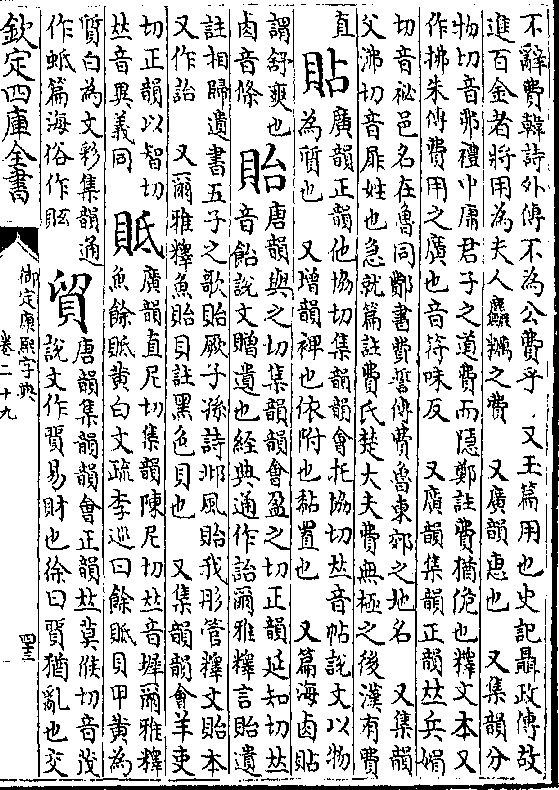 不辭費韓詩外傳不為公費乎 又玉篇用也史記聶政傳故
進百金者將用為夫人麤糲之費 又廣韻惠也 又集韻分
物切音弗禮中庸君子之道費而隱鄭註費猶佹也釋文本又
作拂朱傳費用之廣也音符味反 又廣韻集韻正韻𠀤兵媚
切音祕邑名在魯同鄪書費誓傳費魯東郊之地名 又集韻
父沸切音扉姓也急就篇註費氏楚大夫費無極之後漢有費
直
貼
廣韻正韻他協切集韻韻會托協切𠀤音帖說文以物
為質也 又增韻裨也依附也黏置也 又篇海卤貼
謂舒爽也
卤音條
貽
唐韻與之切集韻韻會盈之切正韻延知切𠀤
音飴說文贈遺也經典通作詒爾雅釋言貽遺
註相歸遺書五子之歌貽厥子孫詩邶風貽我彤管釋文貽本
又作詒 又爾雅釋魚貽貝註黑色貝也 又集韻韻會羊吏
切正韻以智切
𠀤音異義同
貾
廣韻直尼切集韻陳尼切𠀤音墀爾雅釋
魚餘貾黃白文疏李巡曰餘貾貝甲黃為
質白為文彩集韻通
作蚳篇海俗作
貿
唐韻集韻韻會正韻𠀤莫候切音茂
說文作貿易財也徐曰貿猶亂也交
欽定四庫全書
御定康熙字典
卷二十九